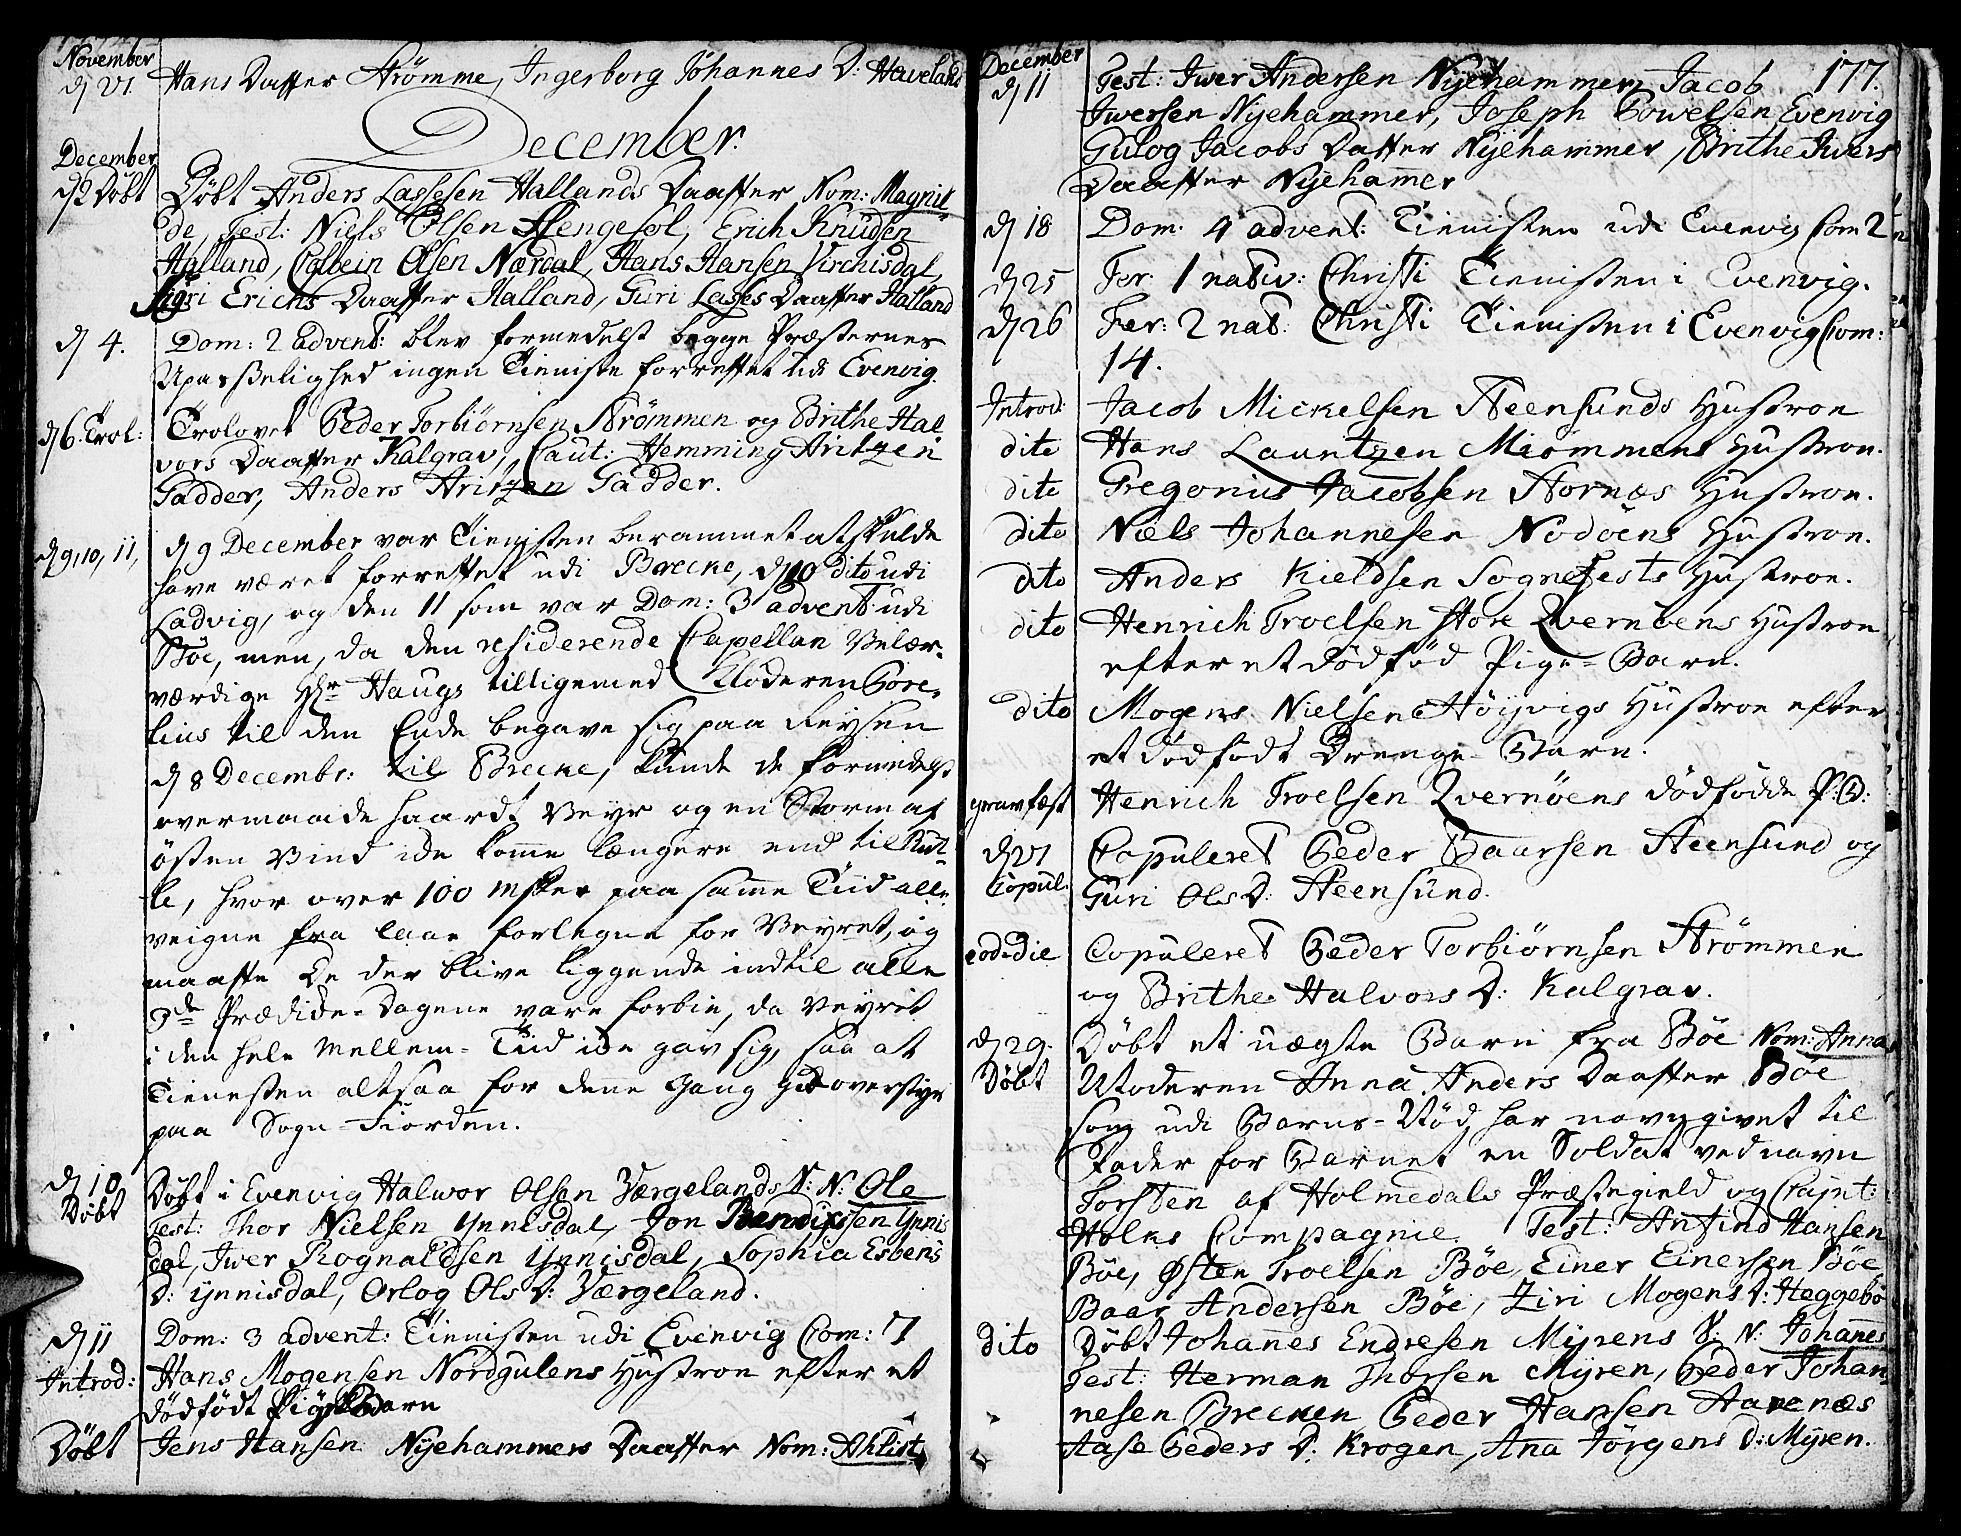 November
d 27 Hans Daatter Strömme, Ingerborg Johannes D: Haveland
December.
December
d 2 Döbt Döbt Anders Lassesen Hallands Daatter Nom: Magnil-
de, Test: Niels Olsen Stengesol, Erich Knudsen
Halland, Colbein Olsen Nærdal, Hans Hansen Virchisdal,
Sigri Erichs Daatter Halland, Guri Lasses Daatter Halland
d 4. Dom: 2 advent: blev formedelst begge Præsternes
Upasselighed ingen Tieniste forrettet udi Evenvig.
d 6. Trol: Trolovet Peder Torbiörnsen Strömmen og Brithe Hal
vors Daatter Kalgrav, Caut: Hemming Aritzen
Gadder, Anders Aritzen Gadder.
d 9, 10, 11, d 9 December var Tienisten berammet at skulde
have været forrettet udi Brecke, d 10 dito udi
Ladvig, og den 11 som var Dom: 3 advent: udi
Böe, men, da den residerende Capellan Velær-
værdige Hr Haugs tilligemed Klokeren Gore-
lius til den Ende begave sig paa Reysen
d 8 Decembr: til Brecke, kunde de formedelst
overmaade haardt Veyr og en Storm af
östen Vind ide komme længere end til Rut-
le, hvor over 100 Msker paa samme Tiid alle-
veigne fra laae forlegne for Veyret, og
maatte De der blive liggende indtil alle
3de Prædike-Dagene vare forbie, da Veyret
i den hele Mellem-Tiid ide gav sig, saa at
Tienesten altsaa for denne Gang gik overstyr
paa Sogne-Fiorden.
d 10 Döbt Döbt i Evenvig Halwor Olsen Værgelands S: N: Ole
Test: Thor Nielsen Ynnesdal, Jon Bendixsen Ynnis
dal, Iwer Rognaldsen Ynnisdal, Sophia Esbens
D: Ynnisdal, Orlog Ols D: Værgeland.
d 11 Dom: 3 advent: Tienisten udi Evenvig Com: 7
Introd: Hans Mogensen Nordgulens Hustroe efter et
dödfödt Pige Barn
Döbt Jens Hansen Nyehammers Daatter Nom: Ahlist
December 177.
d 11 Test: Iwer Andersen Nyehammer Jacob
Iwersen Nyehammer, Joseph Powelsen Evenvig
Gulog Jacobs Datter Nyehammer, Brithe Iwers
Daatter Nyehamer
d 18 Dom: 4 advent: Tienisten udi Evenvig Com 2
d 25 Fer: 1 nativ: Christi Tienisten i Evenvig.
d 26 Fer: 2 nat: Christi Tienisten i Evenvig Com:
14.
Introd: Jacob Mickelsen Steensunds Hustroe
dito Hans Lauritzen Miömmens Hustroe.
dito Gregorius Jacobsen Stornæs Hustroe.
dito Niels Johannesen Nodöens Hustroe.
dito Anders Kieldsen Sognefests Hustroe.
dito Henrich Troelsen store Qvernöens Hustroe
efter et dödfød Pige-Barn.
dito Mogens Nielsen Höyvigs Hustroe efter
et dödfödt Drenge-Barn.
gravfæst Henrich Troelsen Qvernöens dödfödde P: B:
d 27 Copul. Copuleret Peder Baarsen Steensund og
Guri Ols D: Steensund.
eodi die Copuleret Peder Torbiörnsen Strömmen
og Brithe Halvors D: Kalgrav.
d 29. Döbt et uægte Barn fra Böe Nom: Anna
Döbt Moderen Anna Anders Daatter Böe
som udi Barns-Nöd har navngivet til
Fader for Barnet en Soldat ved navn
Torsten af Holmedals Præstegield og Capt:
Holns Compagnie. Test: Anfind Hansen
Böe, Østen Troelsen Böe, Einer Einersen Böe
Baar Andersen Böe, Ziri Mogens D: Heggebö
dito Döbt Johanes Endresen Myrens S: N: Johanes
Test: Herman Thorsen Myren, Peder Johan-
nesen Brecken Peder Hansen Havenæs
Aase Peders D: Krogen, Ana Jörgens D: Myren.